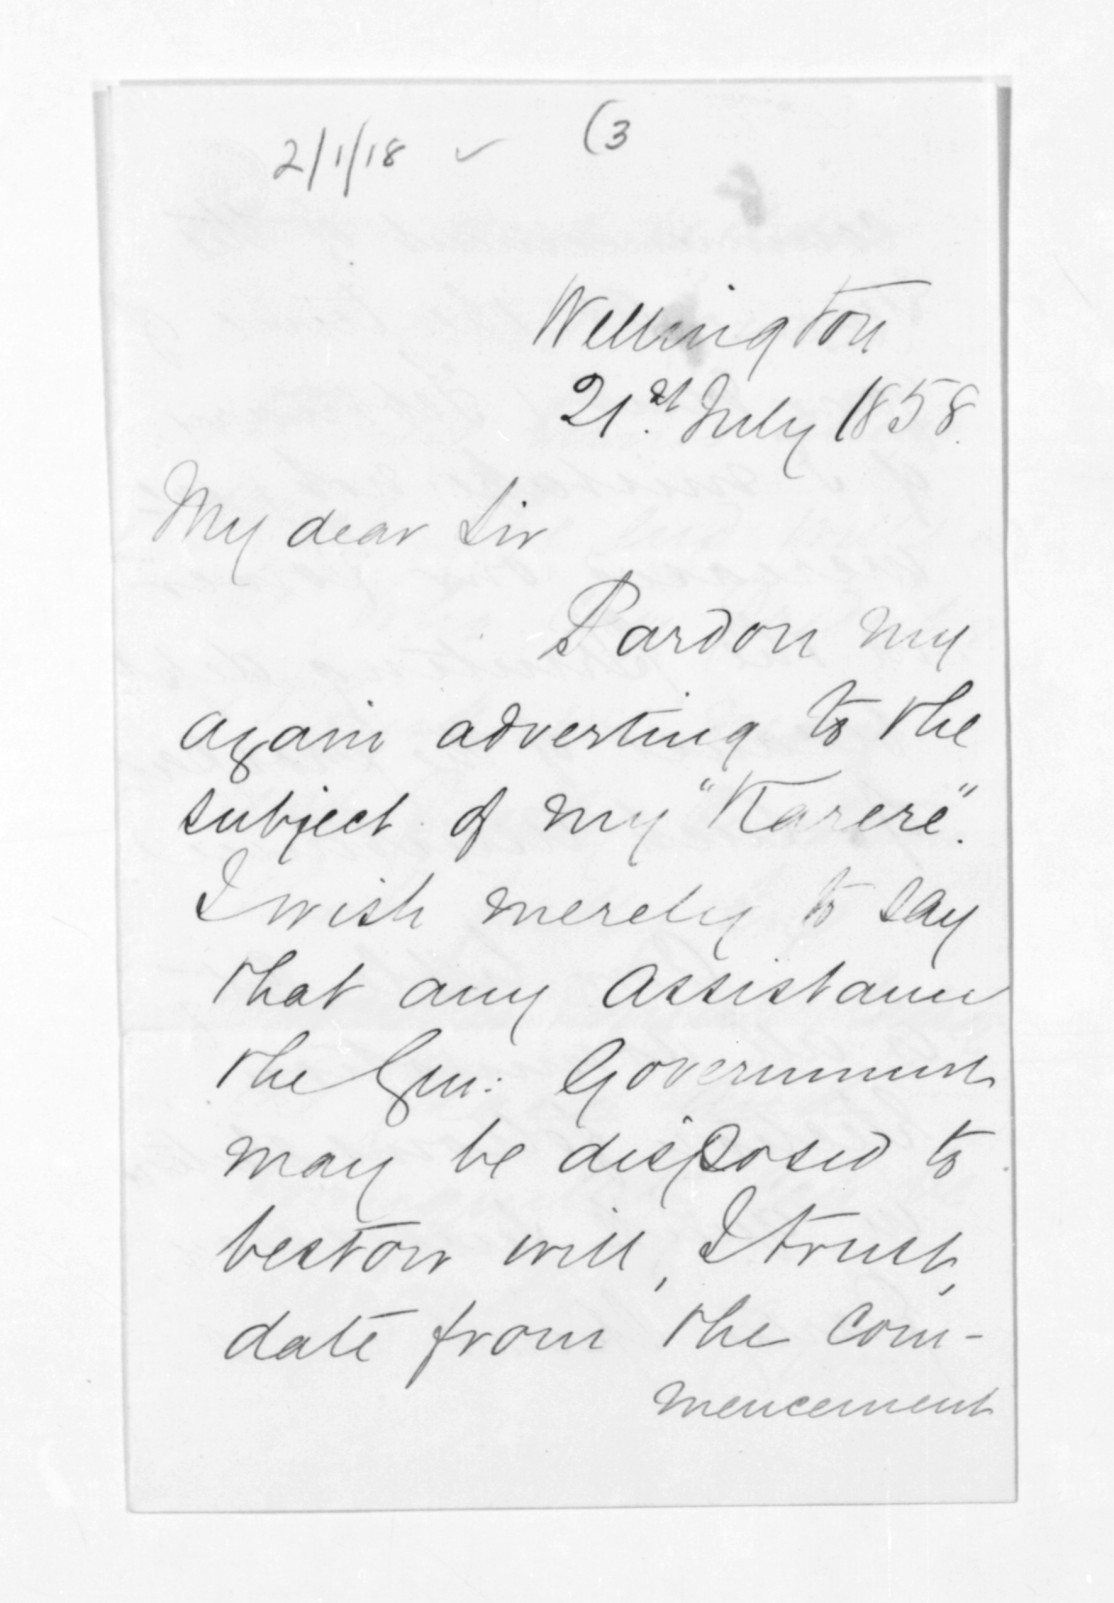 2/1/18 ✓ (3
Wellington
21.st July 1858.
My dear Sir
Pardon my
again adverting to the
subject of my "Karere".
I wish merely to say
that any assistance
the Gen: Government
may be disposed to
bestow will, I trust,
date from the com-
mencement